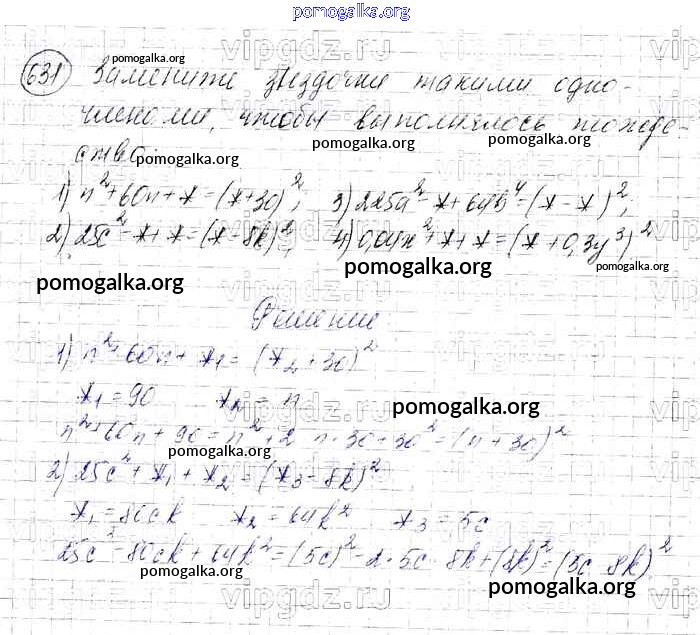 pomogalka.org
vipgdz.ru
631 Замените звездочки такими одно-
членами, чтобы выполнялось тожде-
ство:
pomogalka.org pomogalka.org pomogalka.org pomogalka.org
1) n²+60n+*=(*+30)²; 3) 225a²-*+64b⁴=(*-*)²;
2) 25c²-*+*=(*-8k)²; 4) 0,04x²+*+*=(*+0,3y³)²
pomogalka.org pomogalka.org pomogalka.org
Решение
1) n²+60n+*₁=(*₂+30)²
*₁=90 *₂=n
pomogalka.org
n²+60n+90=n²+2·n·30+30²=(n+30)²
pomogalka.org
2) 25c²+*₁+*₂=(*₃-8k)²
*₁=80ck *₂=64k² *₃=5c
25c²-80ck+64k²=(5c)²-2·5c·8k+(8k)²=(5c-8k)²
pomogalka.org pomogalka.org pomogalka.org